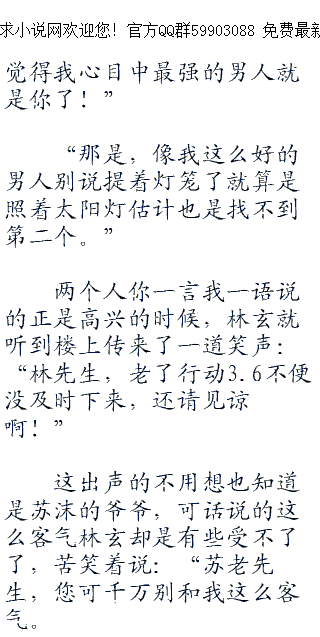 求小说网欢迎您! 官方QQ群59903088 免费最新
觉得我心目中最强的男人就
是你了！”
“那是，像我这么好的
男人别说提着灯笼了就算是
照着太阳灯估计也是找不到
第二个。”
两个人你一言我一语说
的正是高兴的时候，林玄就
听到楼上传来了一道笑声：
“林先生，老了行动3.6不便
没及时下来，还请见谅
啊！”
这出声的不用想也知道
是苏沫的爷爷，可话说的这
么客气林玄却是有些受不了
了，苦笑着说：“苏老先
生，您可千万别和我这么客
气。